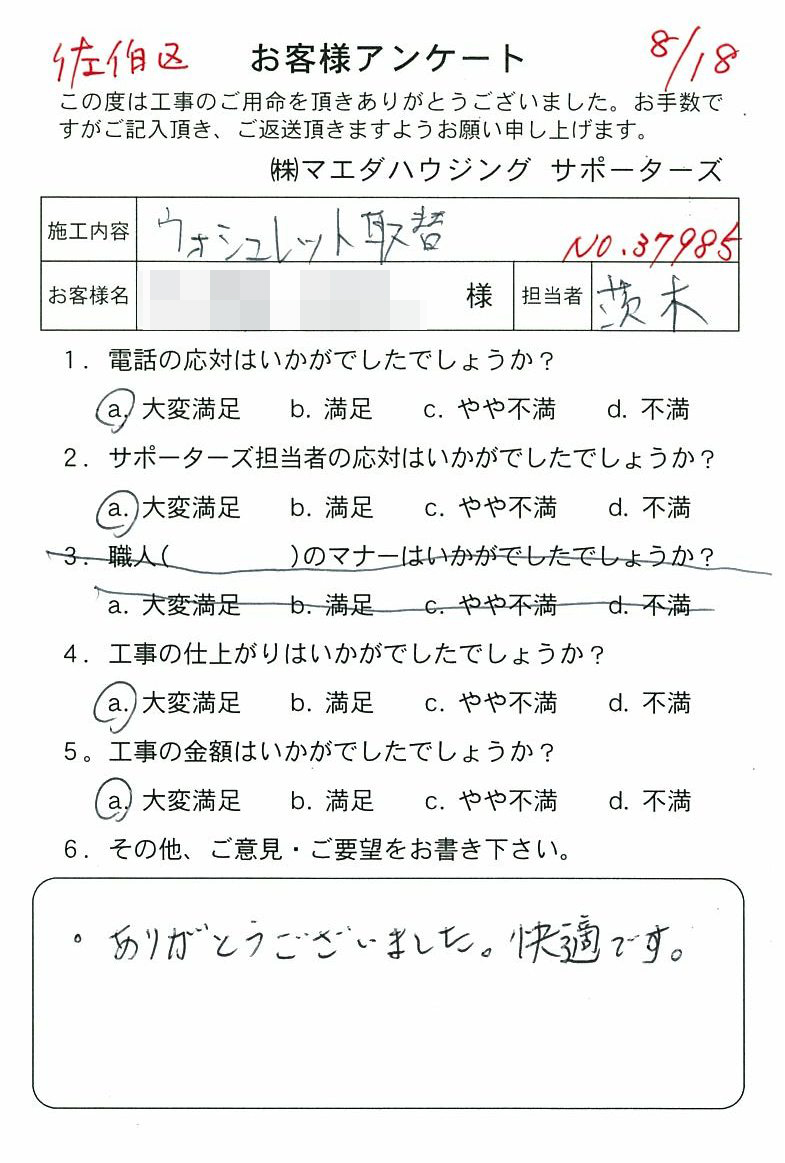 佐伯区 お客様アンケート 8/18
この度は工事のご用命を頂きありがとうございました。お手数で
すがご記入頂き、ご返送頂きますようお願い申し上げます。
㈱マエダハウジング サポーターズ
施工内容 ウォシュレット取替 NO.37985
お客様名 様 担当者 茨木
1. 電話の応対はいかがでしたでしょうか？
a. 大変満足 b. 満足 c. やや不満 d. 不満
2. サポーターズ担当者の応対はいかがでしたでしょうか？
a. 大変満足 b. 満足 c. やや不満 d. 不満
3. 職人( )のマナーはいかがでしたでしょうか？
a. 大変満足 b. 満足 c. やや不満 d. 不満
4. 工事の仕上がりはいかがでしたでしょうか？
a. 大変満足 b. 満足 c. やや不満 d. 不満
5。工事の金額はいかがでしたでしょうか？
a. 大変満足 b. 満足 c. やや不満 d. 不満
6. その他、ご意見・ご要望をお書き下さい。
。ありがとうございました。快適です。